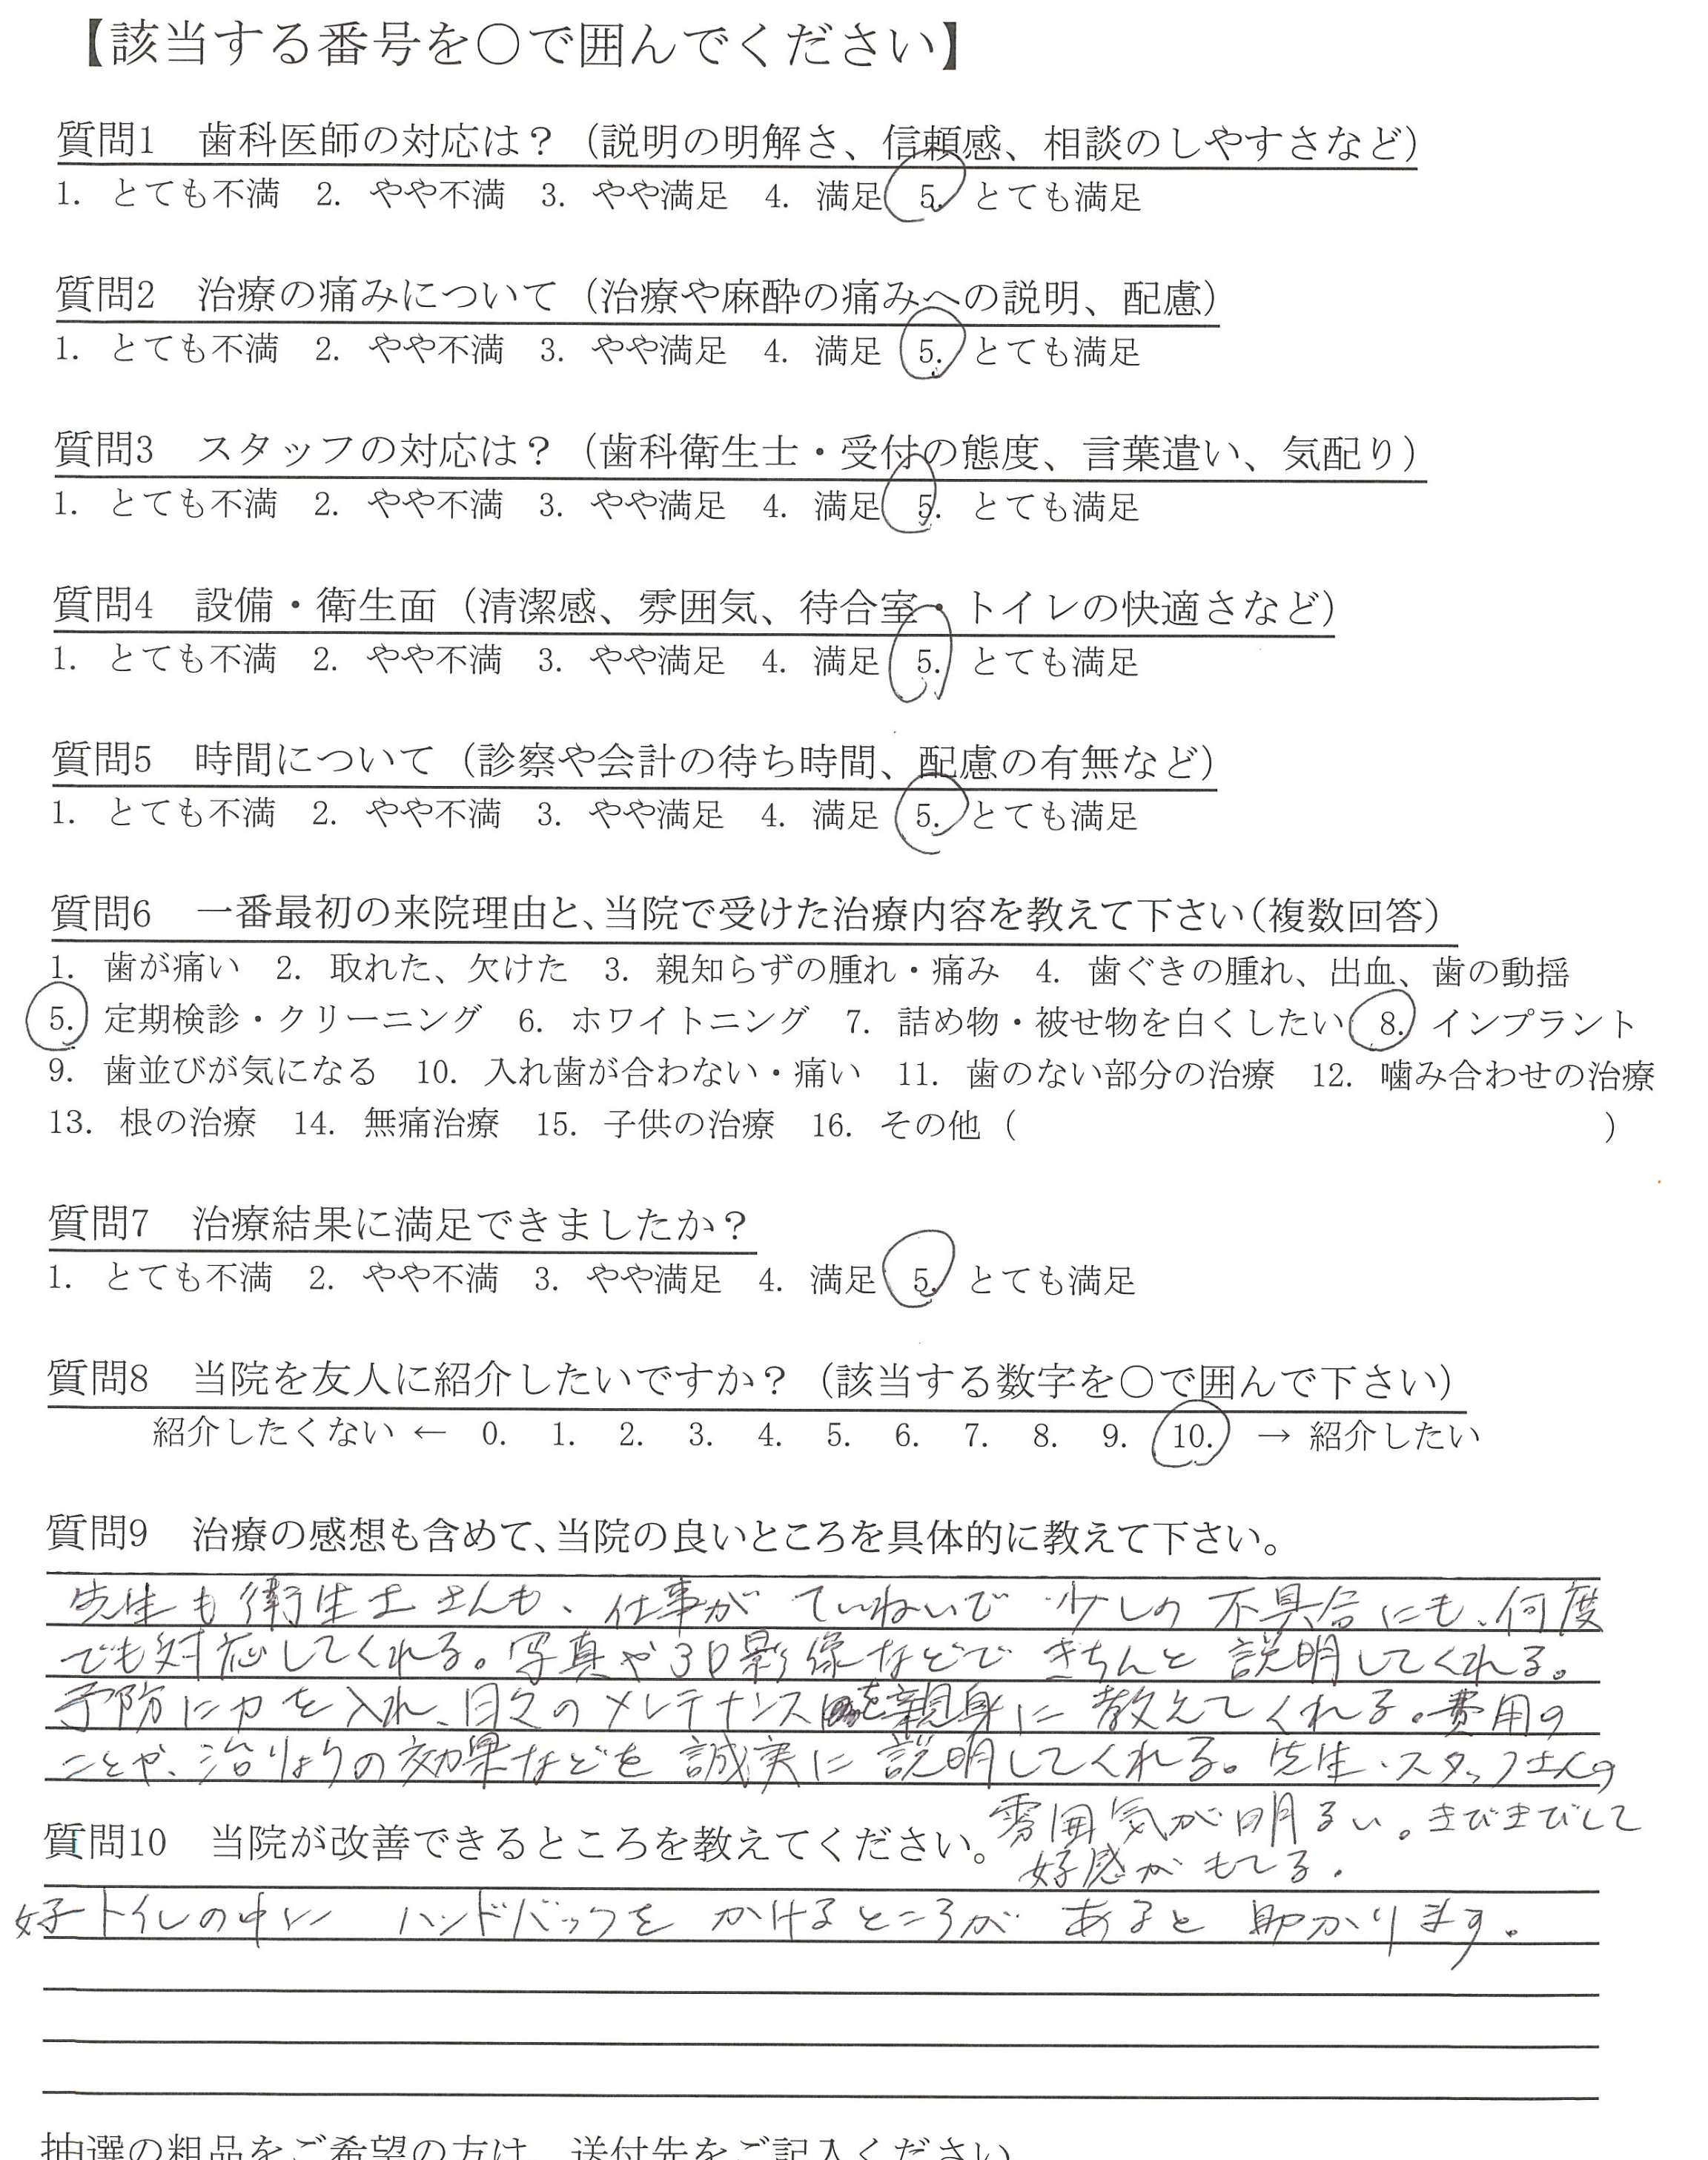 【該当する番号を○で囲んでください】
質問1 歯科医師の対応は？（説明の明解さ、信頼感、相談のしやすさなど）
1. とても不満 2. やや不満 3. やや満足 4. 満足 5. とても満足
質問2 治療の痛みについて（治療や麻酔の痛みへの説明、配慮）
1. とても不満 2. やや不満 3. やや満足 4. 満足 5. とても満足
質問3 スタッフの対応は？（歯科衛生士・受付の態度、言葉遣い、気配り）
1. とても不満 2. やや不満 3. やや満足 4. 満足 5. とても満足
質問4 設備・衛生面（清潔感、雰囲気、待合室・トイレの快適さなど）
1. とても不満 2. やや不満 3. やや満足 4. 満足 5. とても満足
質問5 時間について（診察や会計の待ち時間、配慮の有無など）
1. とても不満 2. やや不満 3. やや満足 4. 満足 5. とても満足
質問6 一番最初の来院理由と、当院で受けた治療内容を教えて下さい（複数回答）
1. 歯が痛い 2. 取れた、欠けた 3. 親知らずの腫れ・痛み 4. 歯ぐきの腫れ、出血、歯の動揺
5. 定期検診・クリーニング 6. ホワイトニング 7. 詰め物・被せ物を白くしたい 8. インプラント
9. 歯並びが気になる 10. 入れ歯が合わない・痛い 11. 歯のない部分の治療 12. 噛み合わせの治療
13. 根の治療 14. 無痛治療 15. 子供の治療 16. その他（ ）
質問7 治療結果に満足できましたか？
1. とても不満 2. やや不満 3. やや満足 4. 満足 5. とても満足
質問8 当院を友人に紹介したいですか？（該当する数字を○で囲んで下さい）
紹介したくない ← 0. 1. 2. 3. 4. 5. 6. 7. 8. 9. 10. → 紹介したい
質問9 治療の感想も含めて、当院の良いところを具体的に教えて下さい。
先生も衛生士さんも、仕事がていねいで 少しの不具合にも、何度
でも対応してくれる。写真や3D影像などで きちんと説明してくれる。
予防に力を入れ、日々のメンテナンスを親身に教えてくれる。費用の
ことや、治りょうの効果などを誠実に説明してくれる。先生・スタッフさんの
雰囲気が明るい。きびきびして
好感がもてる。
質問10 当院が改善できるところを教えてください。
女子トイレの中に ハンドバックを かけるところが あると 助かります。
抽選の粗品をご希望の方は、送付先をご記入ください